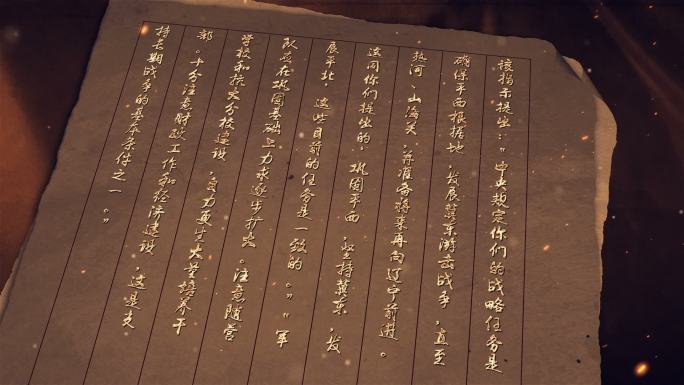 该指示提出:"中央规定你们的战略任务是
确保平西根据地,发展冀东游击战争,直至
热河、山海关,并准备将来再向辽宁前进。
这同你们提出的,巩固平西,坚持冀东,发
展平北,这些目前的任务是一致的。""军
队应在巩固基础上力求逐步扩大。注意随营
学校和抗大分校建设,自力更生大量培养干
部。十分注意财政工作和经济建设,这是支
持长期战争的基本条件之一。"